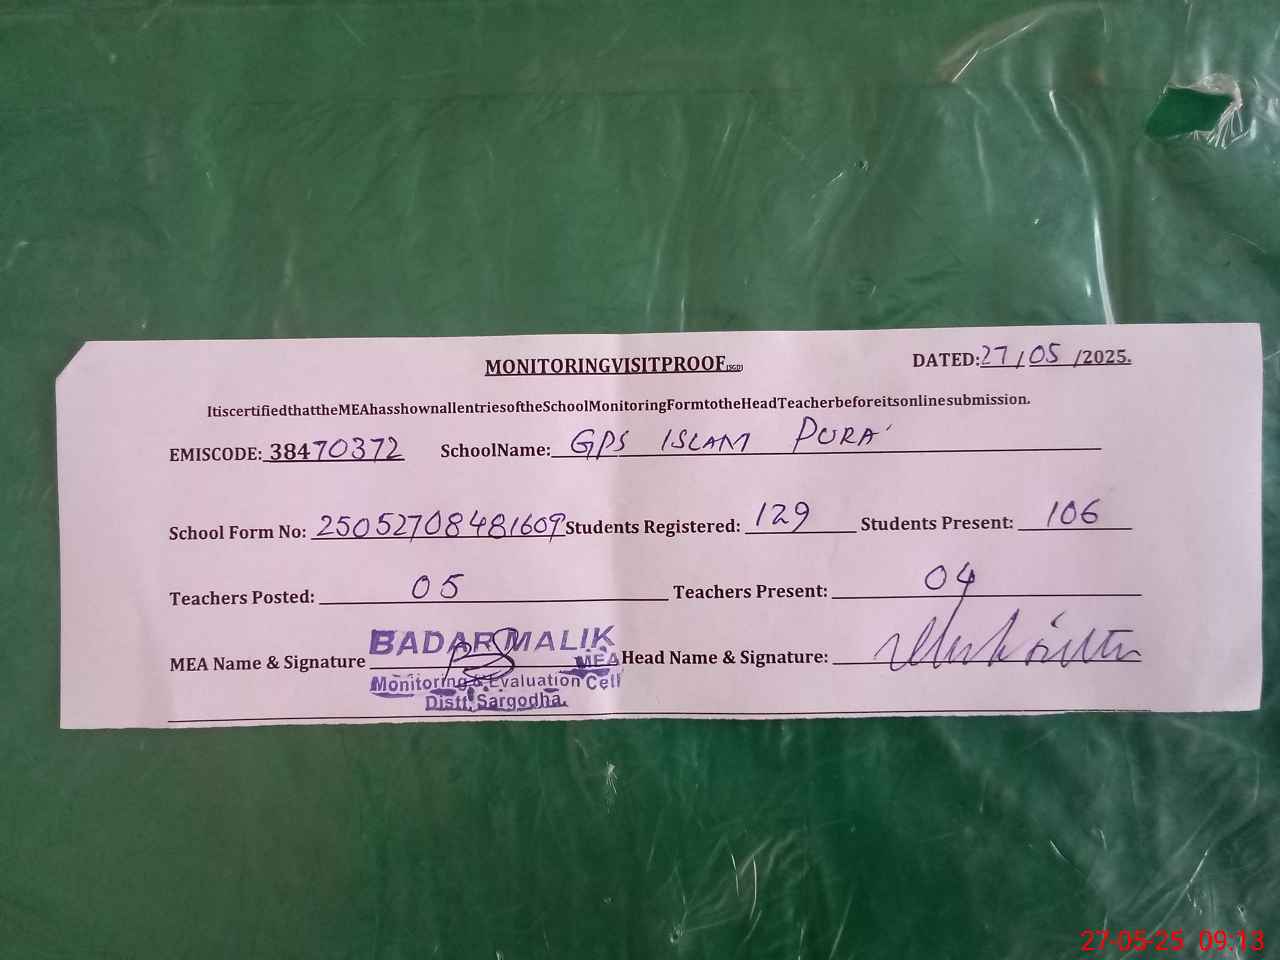 MONITORINGVISITPROOF(SGD) DATED:27/05/2025.
ItiscertifiedthattheMEAhasshownallentriesoftheSchoolMonitoringFormtotheHeadTeacherbeforeitsonlinesubmission.
EMISCODE: 38470372 SchoolName: GPS ISLAM PURA
School Form No: 25052708481609 Students Registered: 129 Students Present: 106
Teachers Posted: 05 Teachers Present: 04
BADAR MALIK
MEA Name & Signature MEA Head Name & Signature:
Monitoring & Evaluation Cell
Distt. Sargodha.
27-05-25 09:13